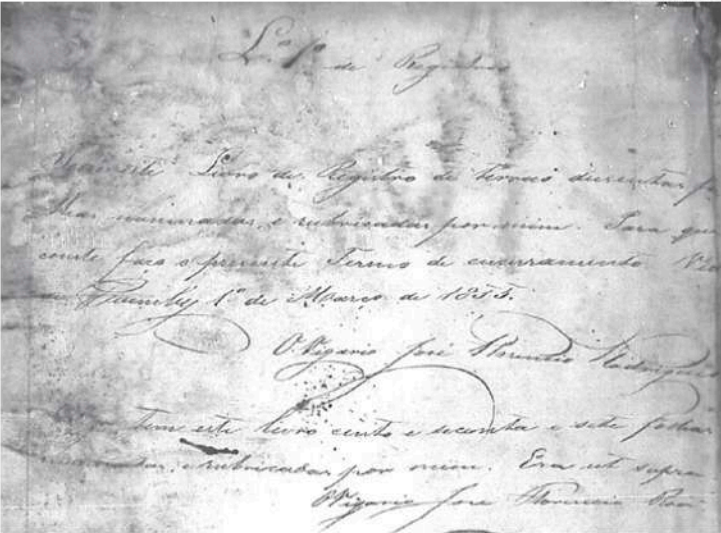 L.º 1º de Registro
este Livro de Registro de terras duzentas
numeradas, e rubricadas por mim. Para que
conste faço o presente Termo de encerramento
1º de Março de 1855.
O Vigario José Florencio Rodrigues
Tem este livro cento e secenta e sete folhas
e rubricadas por mim. Era ut supra
O Vigario José Florencio